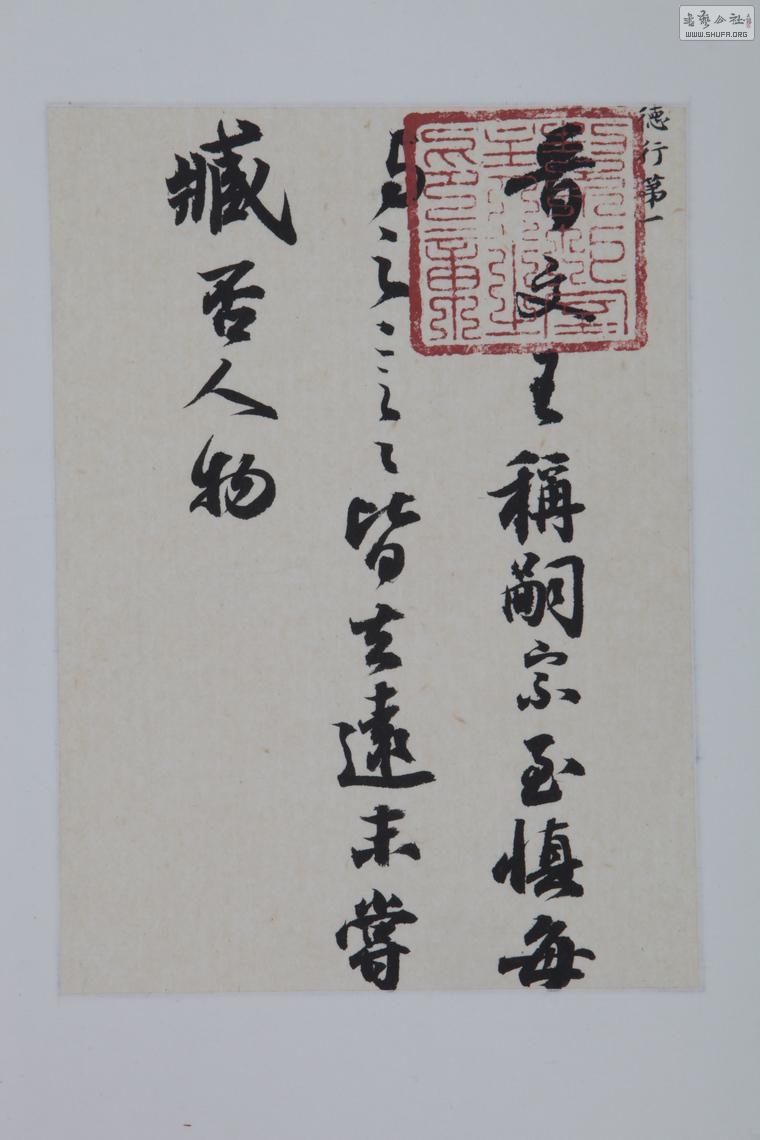 書藝公社
WWW.SHUFA.ORG
德行第一
晉文王稱嗣宗至慎每
与之言〻皆玄遠未嘗
臧否人物